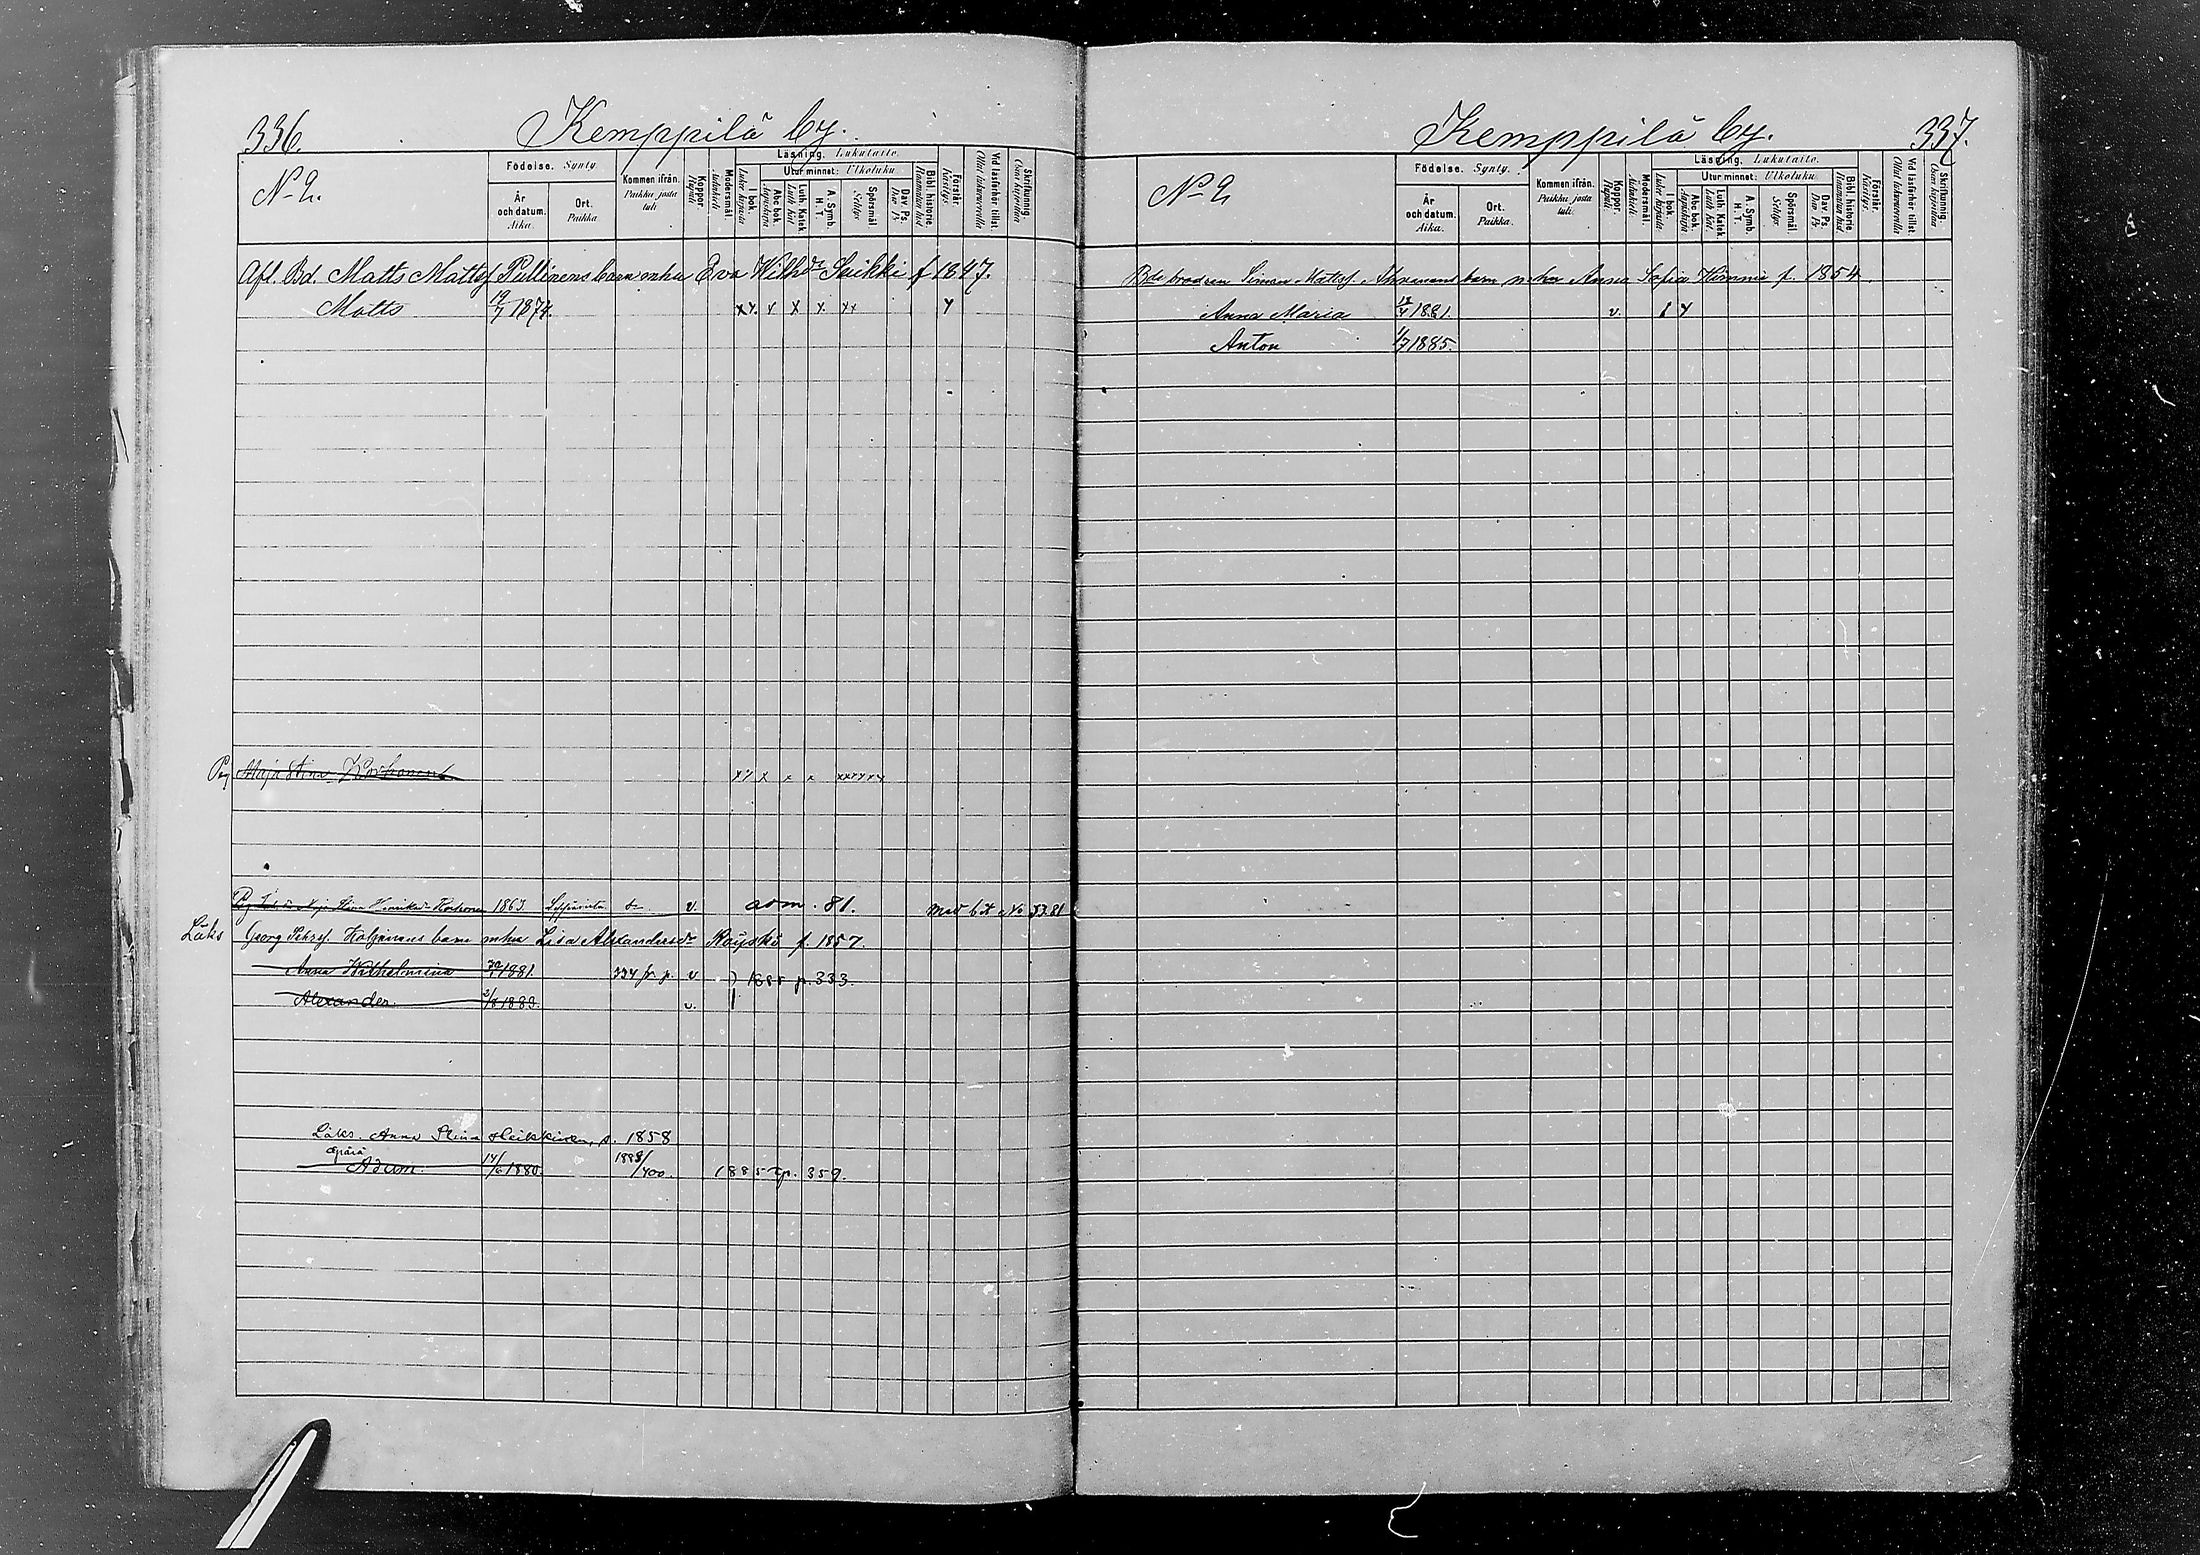 336. Kemppilä by.
N° 2.
Födelse. Synty.
År och datum. Aika.
Ort. Paikka
Kommen ifrån. Paikka josta tuli
Koppor. Rupuli
Modersmål. Äidinkieli
Läsning. Lukutaito.
I bok. Lukee kirjasta
Utur minnet: Ulkoluku
Abc bok. Aapiskirja
Luth. Katek. Luth. kat.
A. Symb. H. T.
Spörsmål Selitys
Dav. Ps. Dav. Ps.
Bibl. historie. Raamatun hist.
Förstår. Käsitys.
Vid läsförhör tillst. Ollut lukuvuorolla
Skrifkunnig. Osaa kirjoittaa
Afl. Bd. Matts Mattsf Pullinens barn m hu Eva Wilh.dr Suikki f 1847.
Matts 19/7 1874. x x. x x x. xx x
Maja Stina Korhonen x x x x x xxxxxx
1863 v. adm. 81. med bet No 53.81
Läks Georg Pehrsf. barn m hu Lisa Alexandersdr f. 1857.
Anna Wilhelmina 1881. 334 fr. p. v 1885 p. 333.
Alexander 1883. v.
Läks. Anna Stina Heikkinen, s. 1858
opärä
Adam. 14/6 1880. 188 /400. 1885 p. 359.
Kemppilä by. 337.
N° 2
Födelse. Synty.
År och datum. Aika.
Ort. Paikka.
Kommen ifrån. Paikka josta tuli.
Koppor. Rupuli
Modersmål. Äidinkieli
Läsning. Lukutaito.
I bok. Lukee kirjasta.
Utur minnet: Ulkoluku
Abc bok. Aapiskirja
Luth. Katek. Luth. kat.
A. Symb. H. T.
Spörsmål Selitys.
Dav. Ps. Dav. Ps.
Bibl. historie Raamatun hist.
Förstår. Käsitys.
Vid läsförhör tillst. Ollut lukuvuorolla
Skrifkunnig. Osaa kirjoittaa
Simon Matsf. barn m hu Anna Sofia f. 1854.
Anna Maria 1881. v.
Anton 1/7 1885.